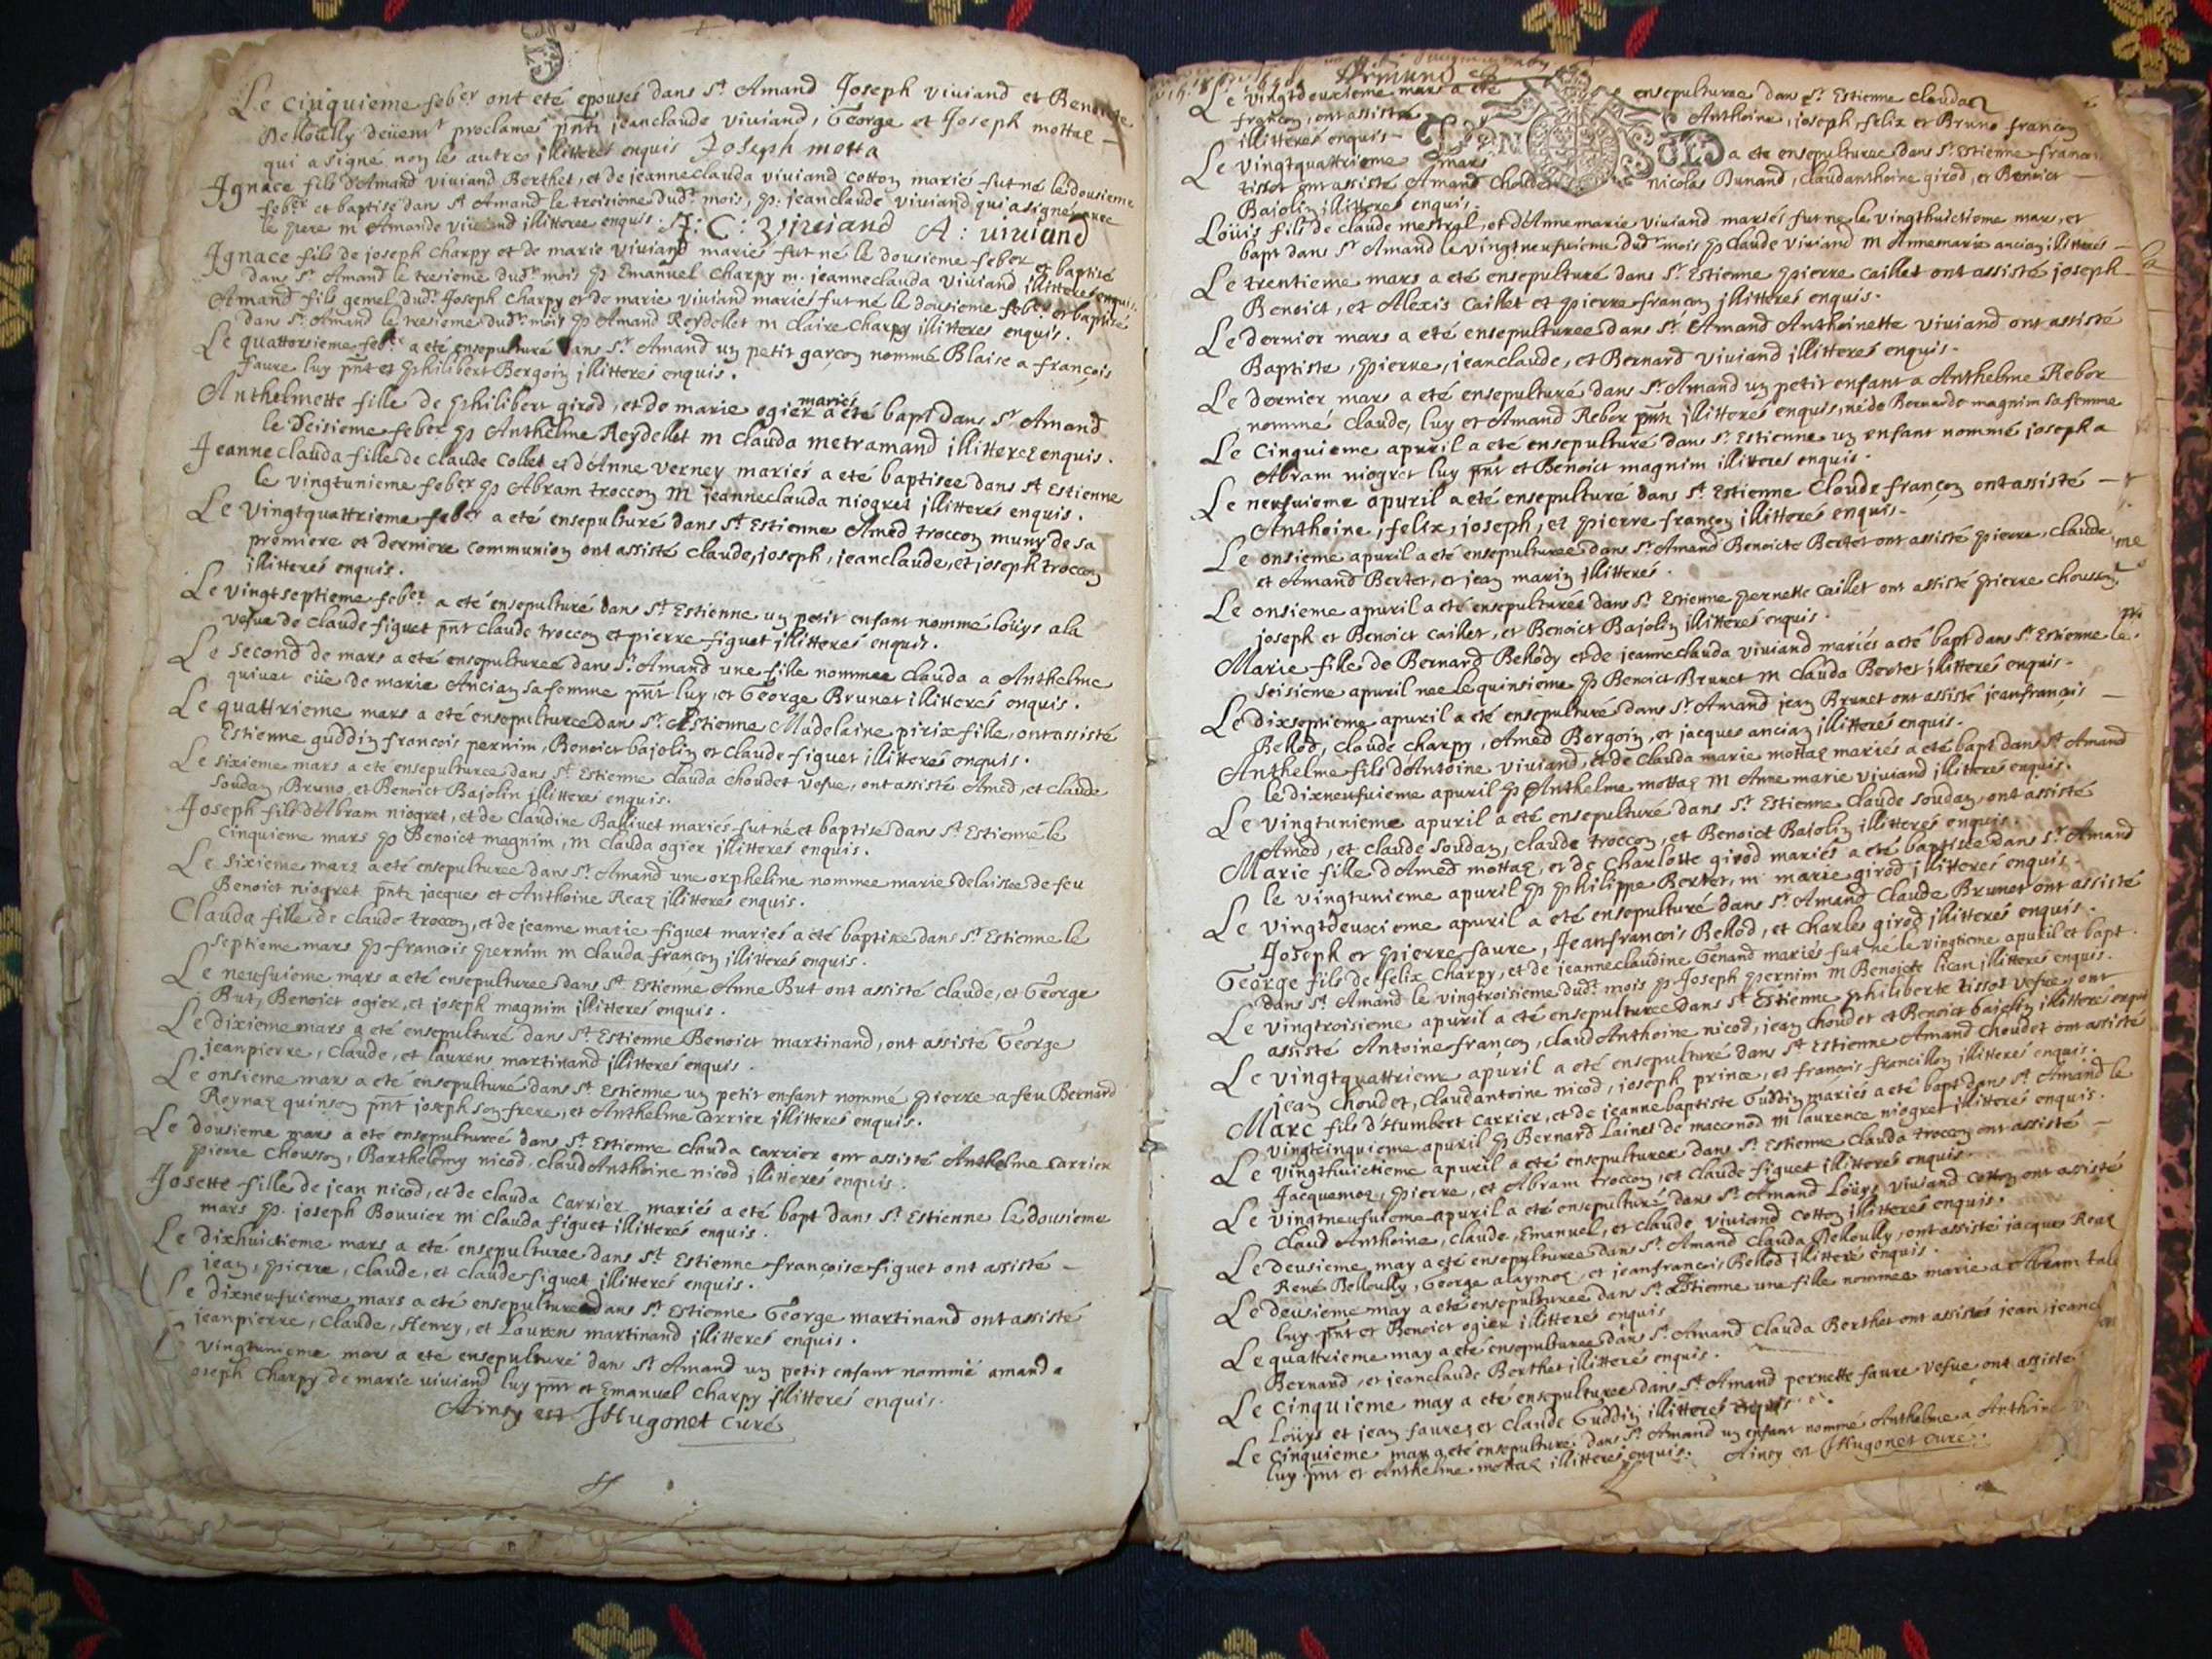 Le cinquieme feber ont eté epousés dans St Amand Joseph viviand et Benoite
Belloully deüemt proclamés pnts jeanclaude viviand, George et Joseph mottaz
qui a signé non les autres jllitterés enquis Joseph motta
Jgnace fils d'Amand viviand Berthet, et de jeanneclauda viviand cotton mariés fut né le dousieme
feber et baptisé dans st Amand le troisieme dudt mois, p: jeanclaude viviand qui a signé avec
le pere m Amande viviand jllitteree enquise. J: C: viviand A: viviand
Jgnace fils de joseph charpy et de marie viviand mariés fut né le dousieme feber et baptisé
dans st Amand le tresieme dudt mois p Emanuel charpy m. jeanneclauda viviand jllitterés enquis.
Amand fils gemel dudt Joseph charpy et de marie viviand mariés fut né le dousieme feber et baptisé
dans st Amand le tresieme dudt mois p Amand Reydellet m claire charpy jllitteres enquis.
Le quattorsieme feber a eté ensepulturé dans St Amand un petit garçon nommé Blaise a françois
faure luy pnt et philibert Bergoin jllitterés enquis.
Anthelmette fille de philibert girod, et de marie ogier mariés a eté bapt dans St Amand
le seisieme feber p Anthelme Reydellet m clauda metramand jllitterez enquis.
Jeanneclauda fille de claude collet et d'Anne verney mariés a eté baptisee dans st Estienne
le vingtunieme feber p Abram troccon m jeanneclauda niogret jllitterés enquis.
Le vingtquattrieme feber a eté ensepulturé dans St Estienne Amed troccon muny de sa
premiere et derniere communion ont assisté claude, joseph, jeanclaude, et joseph troccon
jllitterés enquis.
Le vingtseptieme feber a eté ensepulturé dans St Estienne un petit enfant nommé loüys a la
vefue de claude figuet pnt claude troccon et pierre figuet jllitterés enquis.
Le second de mars a eté ensepulturee dans St Amand une fille nommee clauda a Anthelme
quivet eüe de marie Ancian sa femme pnt luy, et George Brunet illitterés enquis.
Le quattrieme mars a eté ensepulturee dans St Estienne Madelaine pirix fille, ont assisté
Estienne guddin francois pernim, Benoict bajolin et claude figuet illitterés enquis.
Le sixieme mars a eté ensepulturee dans St Estienne clauda choudet vefue, ont assisté Amed, et claude
soudan, Bruno, et Benoict Bajolin jllitterés enquis.
Joseph fils d'Abram niogret, et de claudine Ballivet mariés fut né et baptisé dans St Estienne le
cinquieme mars p Benoict magnim, m clauda ogier jllitterés enquis.
Le sixieme mars a eté ensepulturee dans St Amand une orpheline nommee marie delaissee de feu
Benoict niogret pnts jacques et Anthoine Reaz jllitterés enquis.
Clauda fille de claude troccon, et de jeanne marie figuet mariés a eté baptisee dans St Estienne le
septieme mars p francois pernim m clauda françon jllitterés enquis.
Le neufuieme mars a eté ensepulturee dans St Estienne Anne But ont assisté claude, et George
But, Benoict ogier, et joseph magnim jllitterés enquis.
Le dixieme mars a eté ensepulturé dans St Estienne Benoict martinand, ont assisté George
jeanpierre, claude, et laurens martinand jllitterés enquis.
Le onsieme mars a eté ensepulturé dans St Estienne un petit enfant nommé pierre a feu Bernard
Roynaz quinson pnt joseph son frere, et Anthelme carrier jllitterés enquis.
Le dousieme mars a eté ensepulturee dans St Estienne clauda carrier ont assisté Anthelme carrier
pierre chousson, Barthelemy nicod, claudAnthoine nicod jllitterés enquis.
Josette fille de jean nicod, et de clauda carrier mariés a eté bapt dans St Estienne le dousieme
mars p. joseph Bouvier m clauda figuet illitterés enquis.
Le dixhuictieme mars a eté ensepulturee dans St Estienne françoise figuet ont assisté
jean, pierre, claude, et claude figuet jllitterés enquis.
Le dixneufuieme mars a eté ensepulturé dans St Estienne George martinand ont assisté
jeanpierre, claude, Henry, et Laurens martinand jllitterés enquis.
vingtunieme mars a eté ensepulturé dans St Amand un petit enfant nommé amand a
oseph charpy de marie viviand luy pnt et Emanuel charpy jllitterés enquis.
Ainsy est JHugonet Curé
Le vingtdeuxieme mars a eté ensepulturee dans St Estienne clauda
françon, ont assisté Anthoine, joseph, felix et Bruno françon
illitterés enquis
Le vingtquattrieme mars a eté ensepulturee dans St Estienne
tissot ont assisté Amand choudet nicolas Dunand, claudanthoine girod, et Benoict
Bajolin jllitterés enquis.
Loüis fils de claude mestral, et d'Annemarie viviand mariés fut né le vingthuictieme mars, et
bapt dans St Amand le vingtneufuieme dudt mois p claude viviand m Annemarie ancian illitterés
Le trentieme mars a eté ensepulturé dans St Estienne pierre caillet ont assisté joseph
Benoict, et Alexis caillet et pierre françon jllitterés enquis.
Le dernier mars a eté ensepulturee dans St Amand Anthoinette viviand ont assisté
Baptiste, pierre, jeanclaude, et Bernard viviand jllitterés enquis.
Le dernier mars a eté ensepulturé dans St Amand un petit enfant a Anthelme Rebor
nommé claude, luy et Amand Rebor pnts jllitterés enquis, né de Bernarde magnim sa femme
Le cinquieme apuril a eté ensepulturé dans St Estienne un enfant nommé joseph a
Abram niogret luy pnt et Benoict magnim illitterés enquis.
Le neufuieme apuril a eté ensepulturé dans St Estienne Cloude françon ont assisté
Anthoine, felix, joseph, et pierre françon jllitterés enquis.
Le onsieme apuril a eté ensepulturee dans St Amand Benoicte Bertet ont assisté pierre, claude
et Amand Bertet, et jean marin jllitterés.
Le onsieme apuril a eté ensepulturée dans St Estienne pernette caillet ont assisté pierre chousson
joseph et Benoict caillet, et Benoict Bajolin jllitterés enquis.
Marie fille de Bernard Bellody et de jeanneclauda viviand mariés a eté bapt dans St Estienne le
seisieme apuril nee le quinsieme p Benoict Brunet m clauda Bertet jllitterés enquis.
Le dixseptieme apuril a eté ensepulturé dans St Amand jean Brunet ont assisté jeanfrançois
Bellod, claude charpy, Amed Bergoin, et jacques ancian jllitterés enquis.
Anthelme fils d'Antoine viviand, et de clauda marie mottaz mariés a eté bapt dans St Amand
le dixneufuieme apuril p Anthelme mottaz m Anne marie viviand jllitterés enquis.
Le vingtunieme apuril a eté ensepulturé dans St Estienne claude soudan, ont assisté
Amed, et claude soudan, claude troccon, et Benoict Bajolin jllitterés enquis.
Marie fille d'Amed mottaz, et de charlotte girod mariés a eté baptisee dans St Amand
le vingtunieme apuril p philippe Bertet, m marie girod jllitterés enquis.
Le vingtdeuxieme apuril a eté ensepulturé dans St Amand claude Brunet ont assisté
Joseph et pierre faure, Jeanfrancois Bellod, et charles girod jllitterés enquis.
George fils de felix charpy, et de jeanneclaudine Genand mariés fut né le vingtieme apuril et bapt
dans St Amand le vingtroisieme dudt mois p Joseph pernim m Benoicte lican jllitterés enquis.
Le vingtroisieme apuril a eté ensepulturee dans St Estienne philiberte tissot vefue, ont
assisté Antoine françon, claudAnthoine nicod, jean choudet et Benoict bajolin jllitterés enquis
Le vingtquattrieme apuril a eté ensepulturé dans St Estienne Amand choudet ont assisté
jean choudet, claudantoine nicod, joseph prince, et francois francillon jllitterés enquis.
Marc fils d'Humbert carrier, et de jeanne baptiste Guddin mariés a eté bapt dans St Amand le
vingtcinquieme apuril p Bernard Lainet de macconod m laurence niogret jllitterés enquis.
Le vingthuictieme apuril a eté ensepulturee dans St Estienne clauda troccon ont assisté
Jacquemoz, pierre, et Abram troccon, et claude figuet jllitterés enquis.
Le vingtneufuieme apuril a eté ensepulturé dans St Amand Loüys viviand cotton ont assisté
Claud Anthoine, claude, Emanuel, et claude viviand cotton jllitterés enquis.
Le deusieme may a eté ensepulturee dans St Amand clauda Belloully, ont assisté jacques Reaz
René Belloully, George alaymoz, et jeanfrancois Bellod jllitterés enquis.
Le deusieme may a eté ensepulturee dans St Estienne une fille nommee marie a Abram
luy pnt et Benoict ogier jllitterés enquis
Le quattrieme may a eté ensepulturee dans St Amand clauda Berthet ont assistés jean,
Bernard, et jeanclaude Berthet illitterés enquis.
Le cinquieme may a eté ensepulturee dans St Amand pernette faure vefue ont assisté
Loüys et jean faure, et claude Guddin jllitterés enquis.
Le cinquieme may a eté ensepulturé dans St Amand un enfant nommé Anthelme a
luy pnt et Anthelme mottaz jllitterés enquis. Ainsy est JHugonet curé.